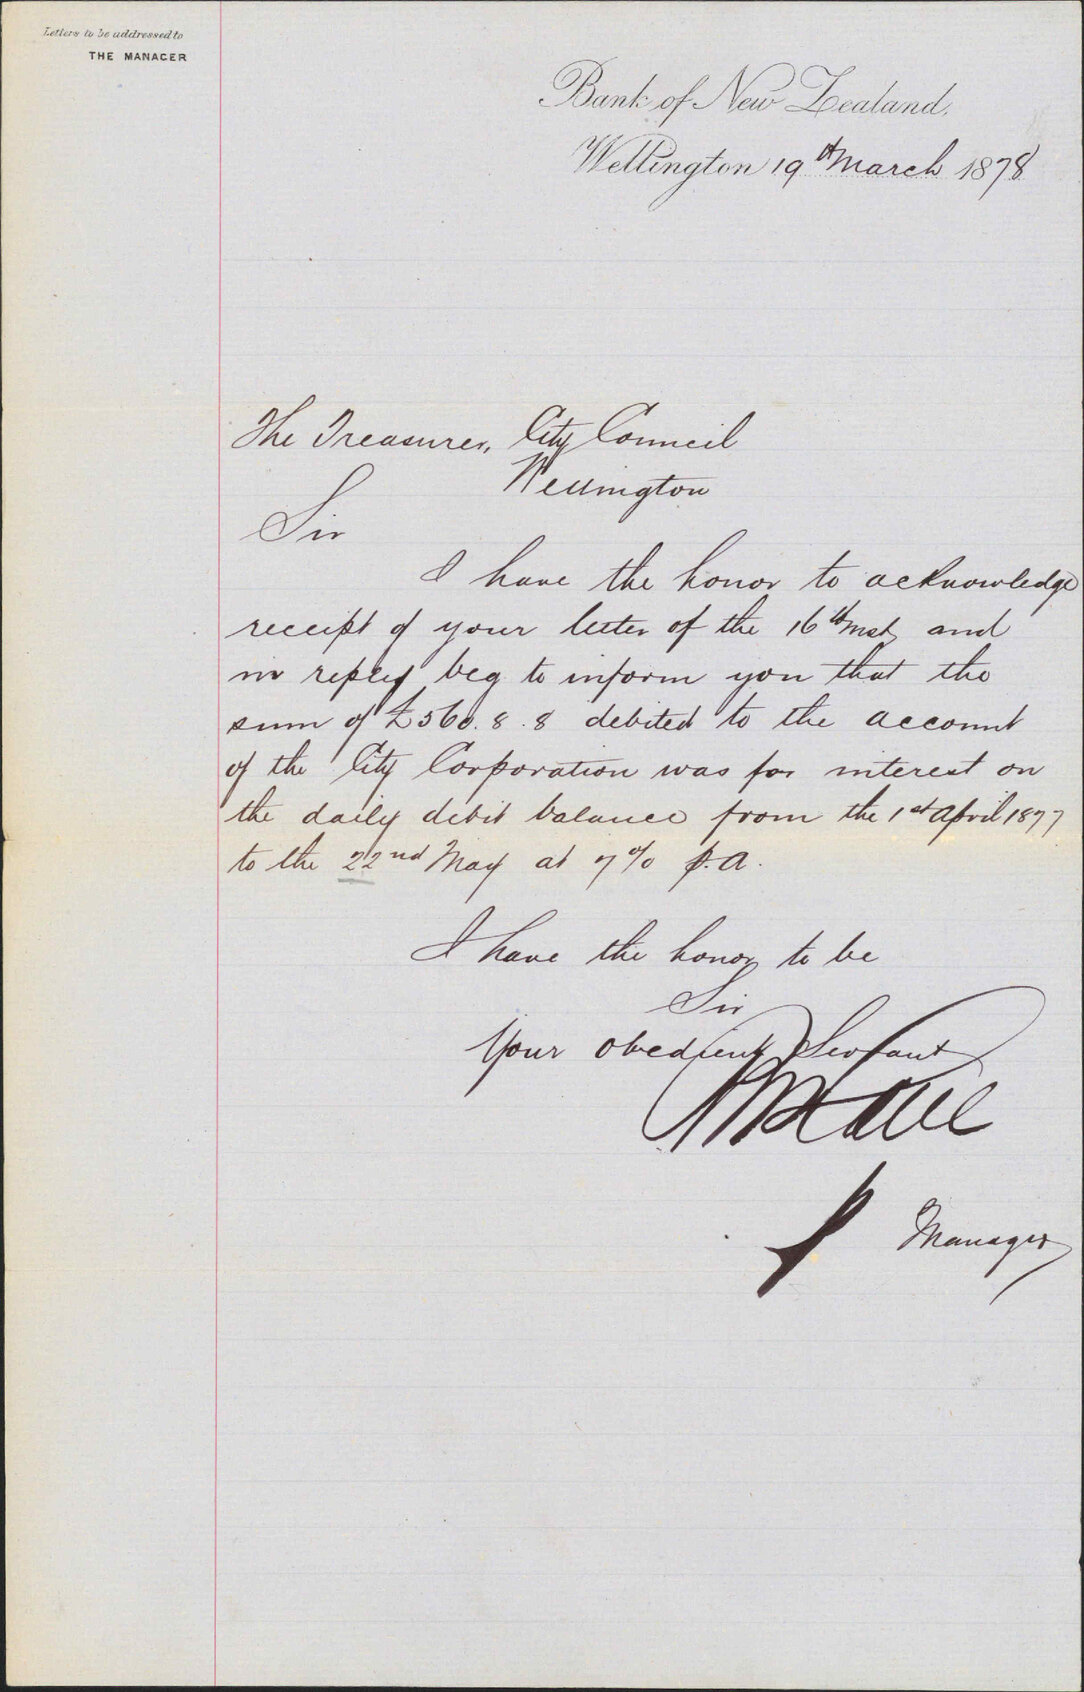 Letters to be addressed to
THE MANAGER
Bank of New Zealand,
Wellington 19th March 1878
The Treasurer, City Council
Wellington
Sir
I have the honor to acknowledge
receipt of your letter of the 16th inst, and
in reply beg to inform you that the
sum of £560.8.8 debited to the account
of the City Corporation was for interest on
the daily debit balance from the 1st April 1877
to the 22nd May at 7% p.a.
I have the honor to be
Sir
Your obedient Servant
Manager